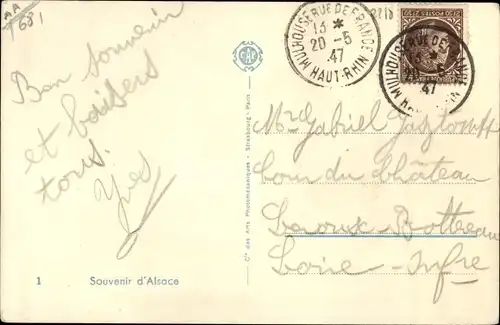 AA
1681
Bon souvenir
et baisers
tous.
Yves
1 Souvenir d'Alsace
CAP
Cie des Arts Photomécaniques - Strasbourg - Paris
MULHOUSE RUE DE FRANCE
13 *
20 -5
47
HAUT-RHIN
MULHOUSE RUE DE FRANCE
-5
47
HAUT-RHIN
Mr Gabriel
Cour du Château
Bottereau
Loire-Infre